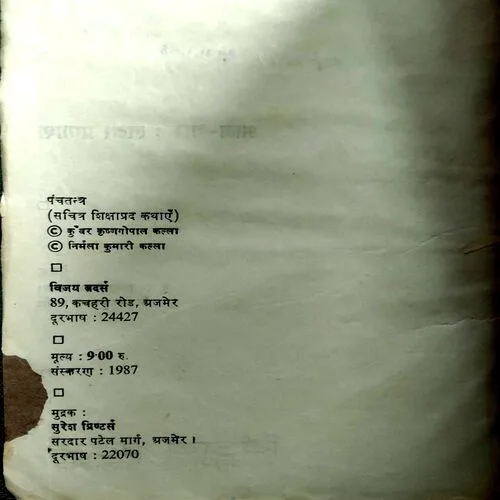 पंचतन्त्र
(सचित्र शिक्षाप्रद कथाएँ)
© कुँवर कृष्णगोपाल कल्ला
© निर्मला कुमारी कल्ला
विजय ब्रदर्स
89, कचहरी रोड, अजमेर
दूरभाष : 24427
मूल्य : 9·00 रु.
संस्करण : 1987
मुद्रक :
सुरेश प्रिण्टर्स
सरदार पटेल मार्ग, अजमेर।
दूरभाष : 22070